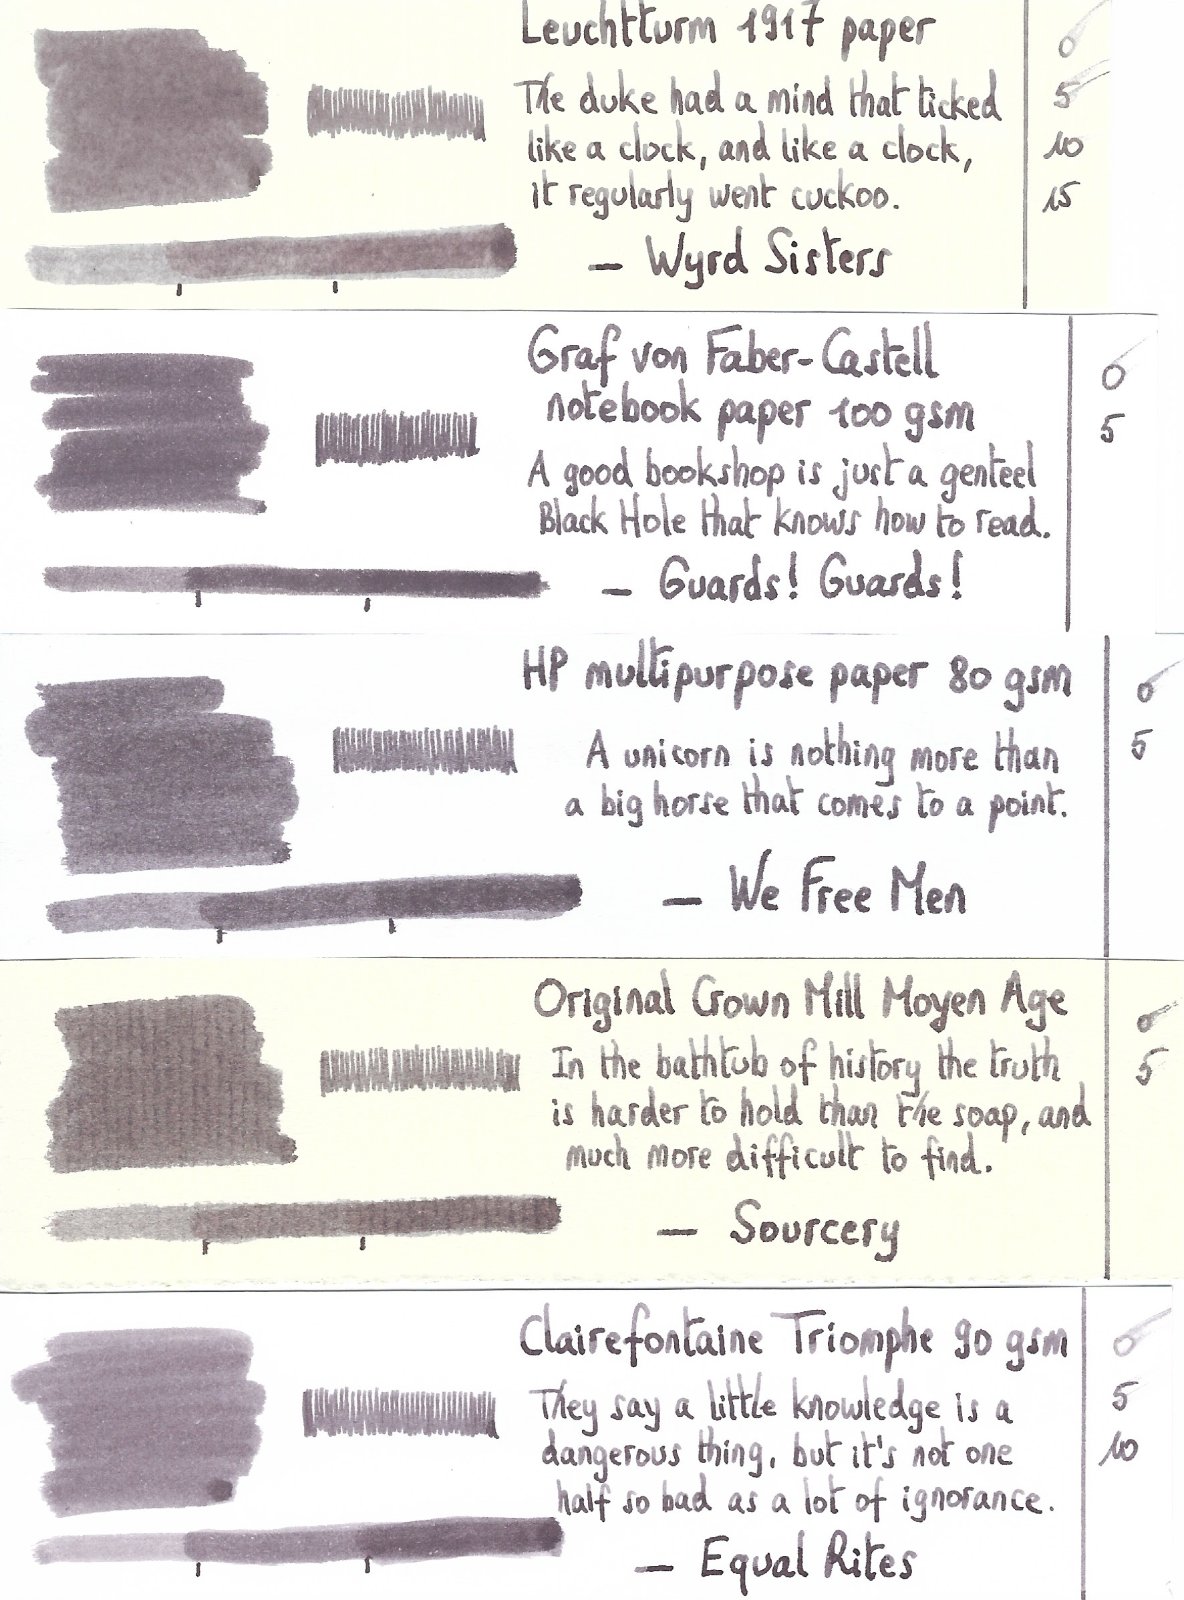 Leuchtturm 1917 paper
The duke had a mind that ticked
like a clock, and like a clock,
it regularly went cuckoo.
— Wyrd Sisters
0
5
10
15
Graf von Faber-Castell
notebook paper 100 gsm
A good bookshop is just a genteel
Black Hole that knows how to read.
— Guards! Guards!
0
5
HP multipurpose paper 80 gsm
A unicorn is nothing more than
a big horse that comes to a point.
— We Free Men
0
5
Original Crown Mill Moyen Age
In the bathtub of history the truth
is harder to hold than the soap, and
much more difficult to find.
— Sourcery
0
5
Clairefontaine Triomphe 90 gsm
They say a little knowledge is a
dangerous thing, but it's not one
half so bad as a lot of ignorance.
— Equal Rites
0
5
10